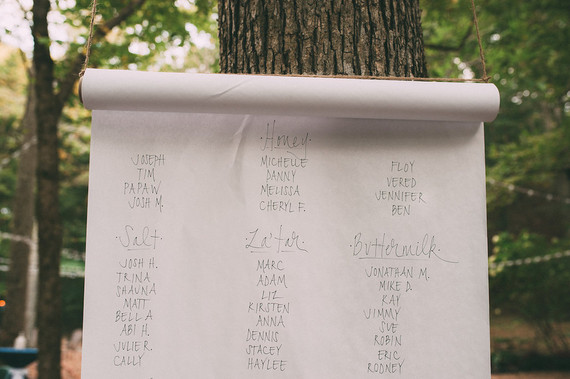 ·Honey·
JOSEPH
TIM
PAPA W.
JOSH M.
MICHELLE
DANNY
MELISSA
CHERYL F.
FLOY
VERED
JENNIFER
BEN
·Salt·
JOSH H.
TRINA
SHAUNA
MATT
BELLA
ABI H.
JULIE R.
CALLY
·Za'tar·
MARC
ADAM
LIZ
KIRSTEN
ANNA
DENNIS
STACEY
HAYLEE
·Buttermilk·
JONATHAN M.
MIKE D.
KAY
JIMMY
SUE
ROBIN
ERIC
RODNEY